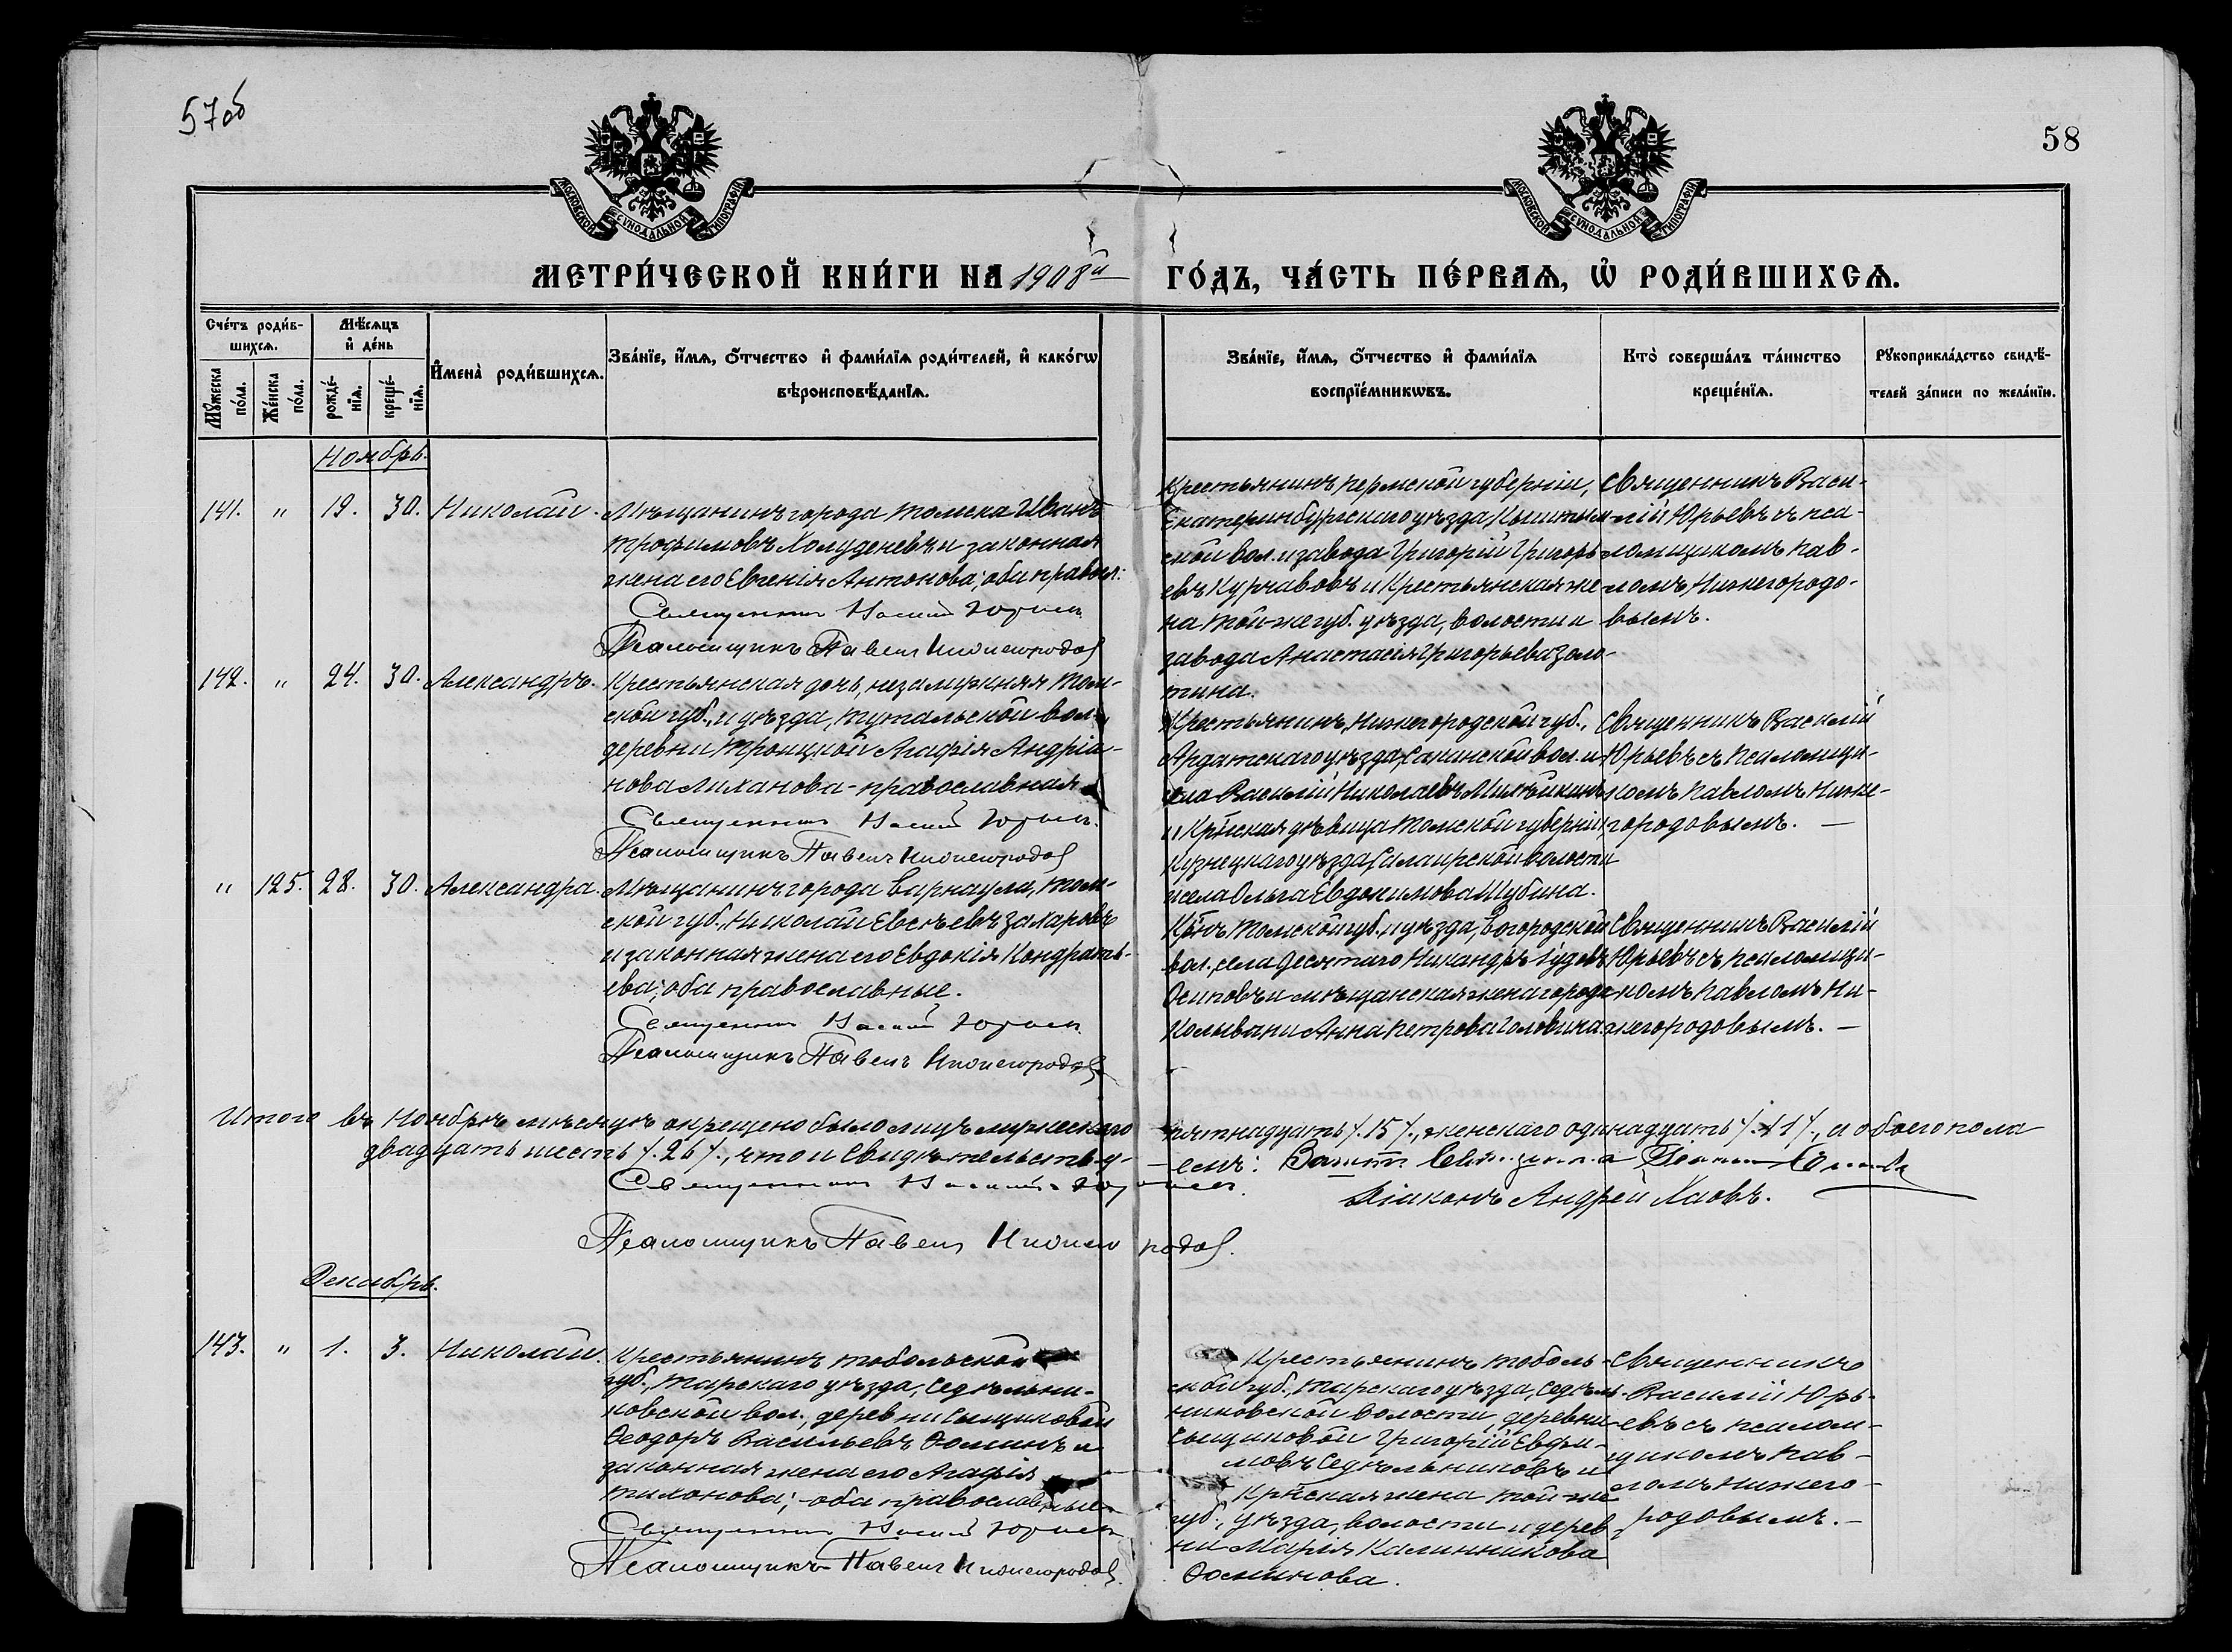 57об
58
МОСКОВСКОЙ СУНОДАЛЬНОЙ ТИПОГРАФІИ
МОСКОВСКОЙ СУНОДАЛЬНОЙ ТИПОГРАФІИ
МЕТРИ́ЧЕСКОЙ КНИ́ГИ НА 1908й ГО́ДЪ, ЧА́СТЬ ПЕ́РВАѦ, Ѡ҆ РОДИ́ВШИХСѦ.
Сче́тъ роди́в-
шихсѧ.
Мѣ́сѧцъ
и҆ де́нь
Мꙋ́жеска
по́ла.
Же́нска
по́ла.
рожде́-
нїѧ.
креще́-
нїѧ.
И҆мена̀ роди́вшихсѧ.
Зва́нїе, и҆́мѧ, о҆́тчество и҆ фами́лїѧ роди́телей, и҆ како́гѡ
вѣроисповѣ́данїѧ.
Зва́нїе, и҆́мѧ, о҆́тчество и҆ фами́лїѧ
воспрїе́мникѡвъ.
Кто̀ соверша́лъ та́инство
креще́нїѧ.
Рꙋкоприкла́дство свидѣ́-
телей за́писи по жела́нїю.
Ноябрь.
141. " 19. 30. Николай.
Мѣщанинъ города Томска Иванъ
Трофимовъ Холуденевъ и законная
жена его Евгенія Антонова; оба правосл:
Священникъ Василій Юрьевъ
Псаломщикъ Павелъ Нижегородов
Крестьянинъ Пермской губерніи,
Екатеринбургскаго уѣзда Кыштым-
ской вол. и завода Григорій Григорь-
евъ Курчавовъ и Крестьянская же-
на той-же губ. уѣзда, волости и
завода Анастасія Григорьева Золо-
тина.
Священникъ Васи-
лій Юрьевъ съ пса-
ломщикомъ Пав-
ломъ Нижегородо-
вымъ.
142. " 24. 30. Александръ.
Крестьянская дочь, незамужняя Том-
ской губ., и уѣзда, Тутальской вол.
деревни Троицкой Агафія Андрія-
нова Лиханова - православная
Священникъ Василій Юрьевъ.
Псаломщикъ Павелъ Нижегородов
Крестьянинъ, Нижегородской губ.,
Ардатскаго уѣзда, Саканской вол. и
села Василій Николаевъ
и Кр̃нская дѣвица Томской губерніи,
Кузнецкаго уѣзда, Салаирской волости
и села Ольга Евдокимова Шубина.
Священникъ Василій
Юрьевъ съ псаломщи-
комъ Павломъ Ниже-
городовымъ. —
" 125. 28. 30. Александра.
Мѣщанинъ города Барнаула, Том-
ской губ., Николай Евсѣевъ Захаровъ
и законная жена его Евдокія Кондрать-
ева; оба православные.
Священникъ Василій Юрьевъ
Псаломщикъ Павелъ Нижегородов
Кр̃нъ Томской губ., и уѣзда, Богородской
вол., села Десятаго Никандръ Іудовъ
Осиповъ и мѣщанская жена города
Колывани Анна Петрова Головина
Священникъ Василій
Юрьевъ съ псаломщи-
комъ Павломъ Ни-
жегородовымъ. —
Итого въ Ноябрѣ мѣсяцѣ окрещено было лицъ мужескаго пятнадцать /.15/., женскаго одинадцать /.11/., а обоего пола
двадцать шесть /.26/., что и свидѣтельству- емъ:
Священникъ Василій Юрьевъ.
Діаконъ Андрей Хаовъ.
Псаломщикъ Павелъ Нижегородов.
Декабрь.
143. " 1. 3. Николай.
Крестьянинъ Тобольской
губ., Тарскаго уѣзда, Седѣльни-
ковской вол., деревни Сыщиковой
Ѳеодоръ Васильевъ Ѳоминъ и
законная жена его Агафія
Тихонова; оба православные
Священникъ Василій Юрьевъ
Псаломщикъ Павелъ Нижегородов.
Крестьянинъ Тоболь-
ской губ., Тарскаго уѣзда, Седѣль-
никовской волости, деревни
Сыщиковой Григорій Евфи-
мовъ Седѣльниковъ и
Кр̃нская жена той-же
губ., уѣзда, волости и дерев-
ни Марія Калинникова
Ѳоминова.
Священникъ
Василій Юрь-
евъ съ псалом-
щикомъ Пав-
ломъ Нижего-
родовымъ. —